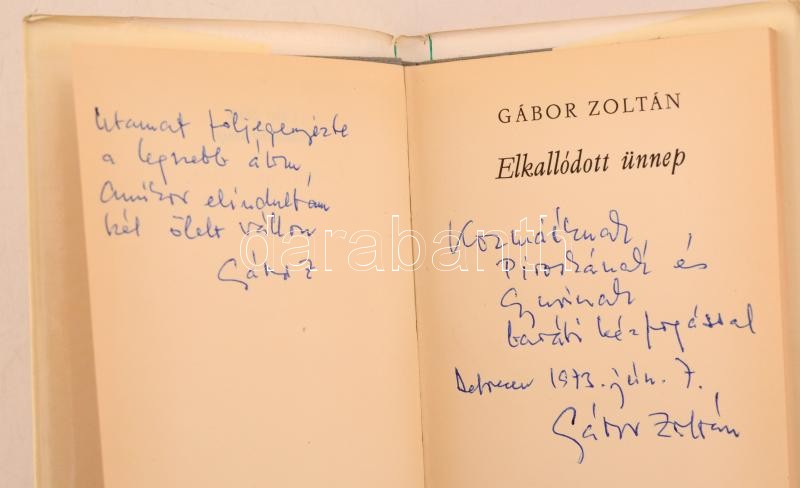 Utamat följegyezte
a legszebb álom,
amikor elindultam
két ölelt vállon
Gábor Z
GÁBOR ZOLTÁN
Elkallódott ünnep
Kozmáéknak,
Piroskának és
Gyurinak
baráti kézfogással
Debrecen 1973. jún. 7.
Gábor Zoltán
darabanth